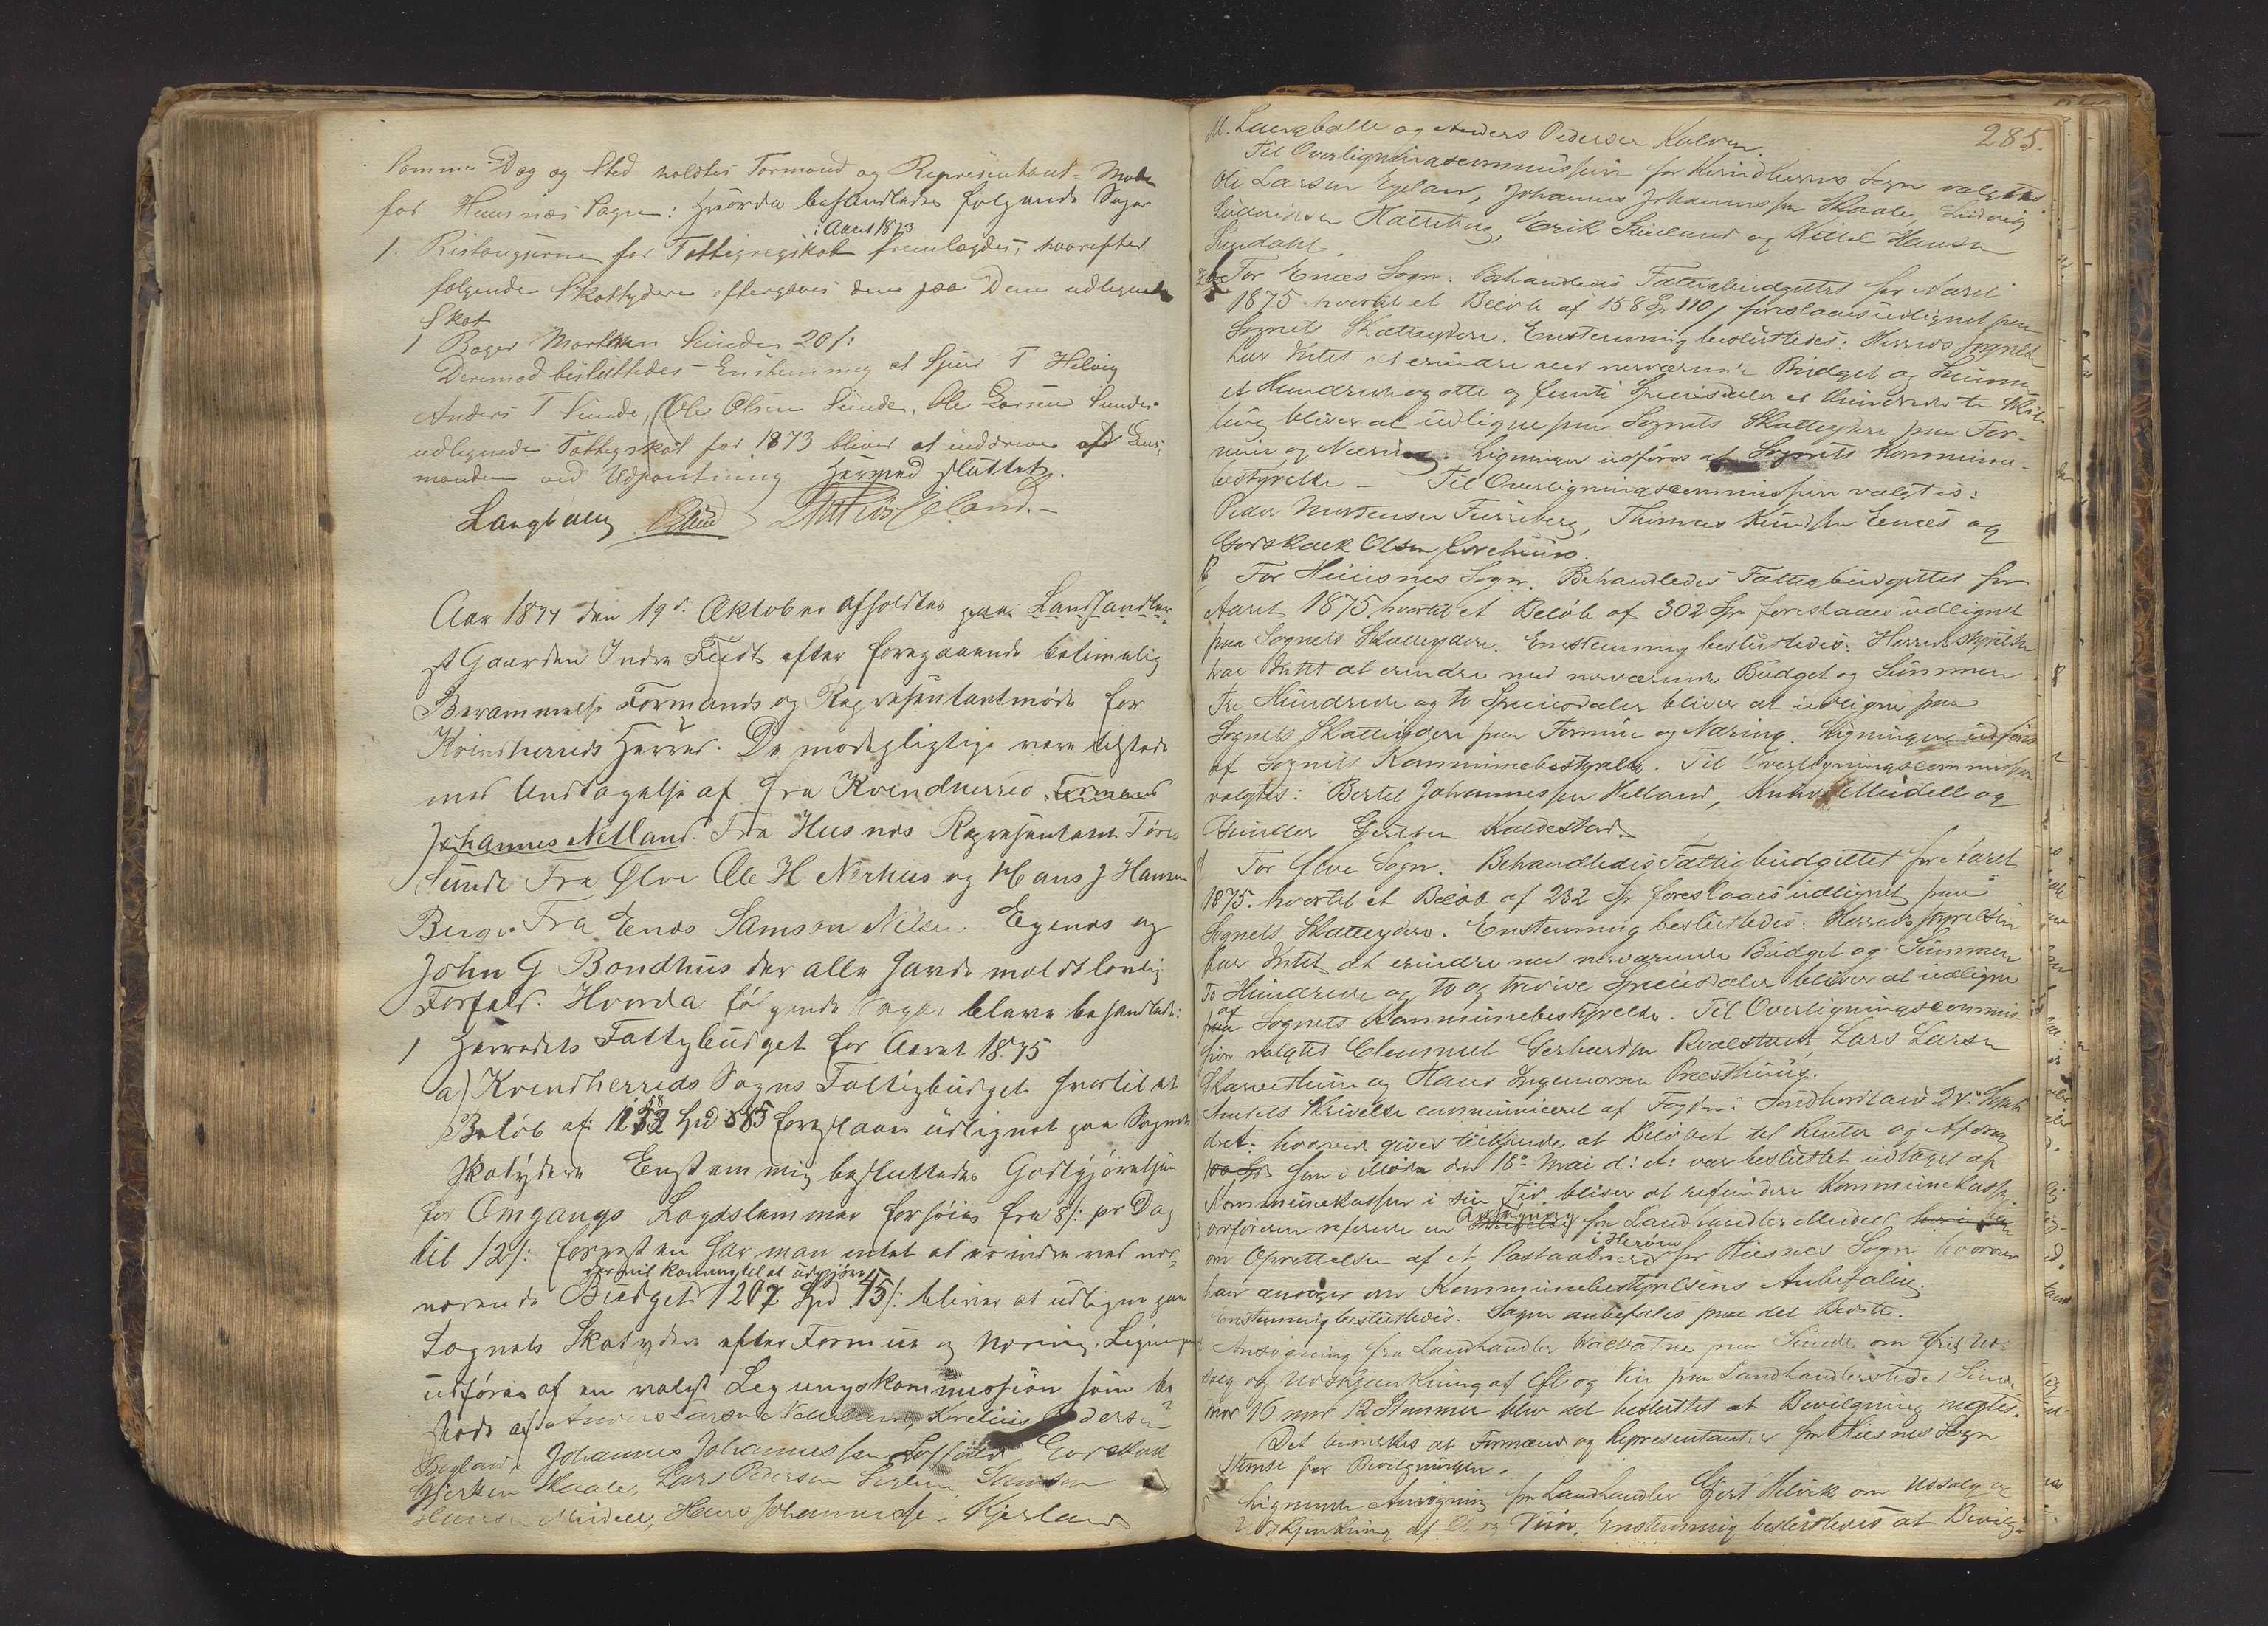 Samme Dag og Sted holdtes Formand og Representant-Møde
for Huusnæs Sogn: hvorda behandledes følgende Sager
i Aaret 1873
1. Restanserne for Fattigregnskab fremlagdes, hvorefter
følgende Skatydere eftergaves den paa Dem udlignede
Skat
1 Bager Mortensen Sunde 20 s:
Derimod besluttedes Enstemmig at Sjur T Helvig
Anders T Sunde, Ole Olsen Sunde, Ole Larsen Sunde
udlignede Fattigskat for 1873 bliver at inddrive af Lens-
manden ved Udpantning Hermed sluttet.
Langballe
Aar 1874 den 19de Oktober afholdtes paa Landhandler-
st Gaarden Indre Feidt efter foregaaende betimelig
Berammelse Formands og Representantmøde for
Kvindherreds Herred. De mødepligtige vare tilstede
med Undtagelse af fra Kvindherred Formand
Johannes Netland. Fra Husnes Representant Tøres
Sunde Fra Ølve Ole H Nerhus og Hans J Hansen
Berge. Fra Enes Samson Nilsen Egenes og
John G Bondhus der alle havde meldt lovlig
Forfald. Hvorda følgende Sager bleve behandlede:
1 Herredets Fattigbudget for Aaret 1875
a) Kvindherreds Sogns Fattigbudget hvortil et
Beløb af: Spd 85 foreslaaes udlignet paa Sognets
Skatydere Enstemmig besluttedes Godtgjørelsen
for Omgangs Lægdslemmer forhøies fra 8 s: pr Dag
til 12 s: forresten har man intet at erindre ved nær-
der vil komme til at udgjøre
værende Budget 1207 Spd 15 s: bliver at udligne paa
Sognets Skatydere efter Formue og Næring. Ligningen
udføres af en valgt Legningskommission som be
staar af Anders Larsen Kornelius Pedersen
Johannes Johannessen Godskalk
Skaale, Lars Pedersen Samson
Hansen Meidell, Hans Johannesse Kjerland
285.
M. Langballe og Anders Pedersen Kalven.
Til Overligningscommission for Kvindherreds Sogn valgtes
Ole Larsen Egeland, Johannes Johannessen Skaale, Ludvig
Ludvigsen Hatteberg, Erik Guddal og Kittel Hansen
Sundahl
For Enæs Sogn: Behandledes Fattigbudgettet for Aaret
1875 hvortil et Beløb af 158 Sp 110 s foreslaaes udlignet paa
Sognets Skatteydere. Enstemmig besluttedes: Herredsstyrelsen
har Intet at erindre ved nærværende Budget og Summen
et Hundrede og otte og femti Speciesdaler et hundrede ti Skil-
ling bliver at udligne paa Sognets Skatteydere paa For-
mue og Næring. Ligningen udføres af Sognets Kommune-
bestyrelse - Til Overligningscommission valgtes:
Peder Mortensen Furreberg, Thomas Knudsen Enæs og
Godskalk Olsen
C For Huusnes Sogn. Behandledes Fattigbudgettet for
Aaret 1875 hvortil et Beløb af 302 Sp foreslaaes udlignet
paa Sognets Skatteydere. Enstemmig besluttedes: Herredsstyrelsen
har Intet at erindre med nærværende Budget og Summen
Tre Hundrede og to Speciesdaler bliver at udligne paa
Sognets Skatteydere paa Formue og Næring. Ligningen udføres
af Sognets Kommunebestyrelse. Til Overligningscommission
valgtes: Bertel Johannessen Helland, Knud Meidell og
Gunder Kaldestad
d For Ølve Sogn. Behandledes Fattigbudgettet for Aaret
1875. hvortil et Beløb af 232 Sp foreslaaes udlignet paa
Sognets Skatteydere. Enstemmig besluttedes: Herredsstyrelsen
har Intet at erindre med nærværende Budget og Summen
To Hundrede og to og tredive Speciesdaler bliver at udligne
af
paa Sognets Kommunebestyrelse. Til Overligningscommis-
sion valgtes Clemmet Gerhardsen Kvalstad Lars Larsen
og Hans Ingemorsen Præsthuus.
Amtets Skrivelse communiceret af Fogden i Sundhordland 24de Septb
d: A: hvorved gives tilkjende at Beløbet til Renter og Afdrag
som i Møde den 18de Mai d: A: var besluttet udtaget af
Kommunekassen i sin Tid bliver at refundere Kommunekassen.
Ansøgning fra Landhandler Meidell
i Herøen
om Oprettelsen af et Postaabneri for Huusnes Sogn hvorom
han ansøger om Kommunebestyrelsens Anbefaling.
Enstemmig besluttedes: Sagen anbefales paa det Bedste.
Ansøgning fra Landhandler Valvatne paa Sunde om Frit Ud-
salg og Udskjænkning af Øl og Vin paa Landhandlerstedet Sunde
mor 16 mod 12 Stemmer blev det besluttet at Bevilgning nægtes.
Det bemerkes at Formænd og Representanter for Huusnes Sogn
stemte for Bevilgningen.
Lignende Ansøgning fra Landhandler Gjert Helvik om Udsalg og
Udskjenkning af Øl og Viin. Enstemmig besluttedes at Bevilg-